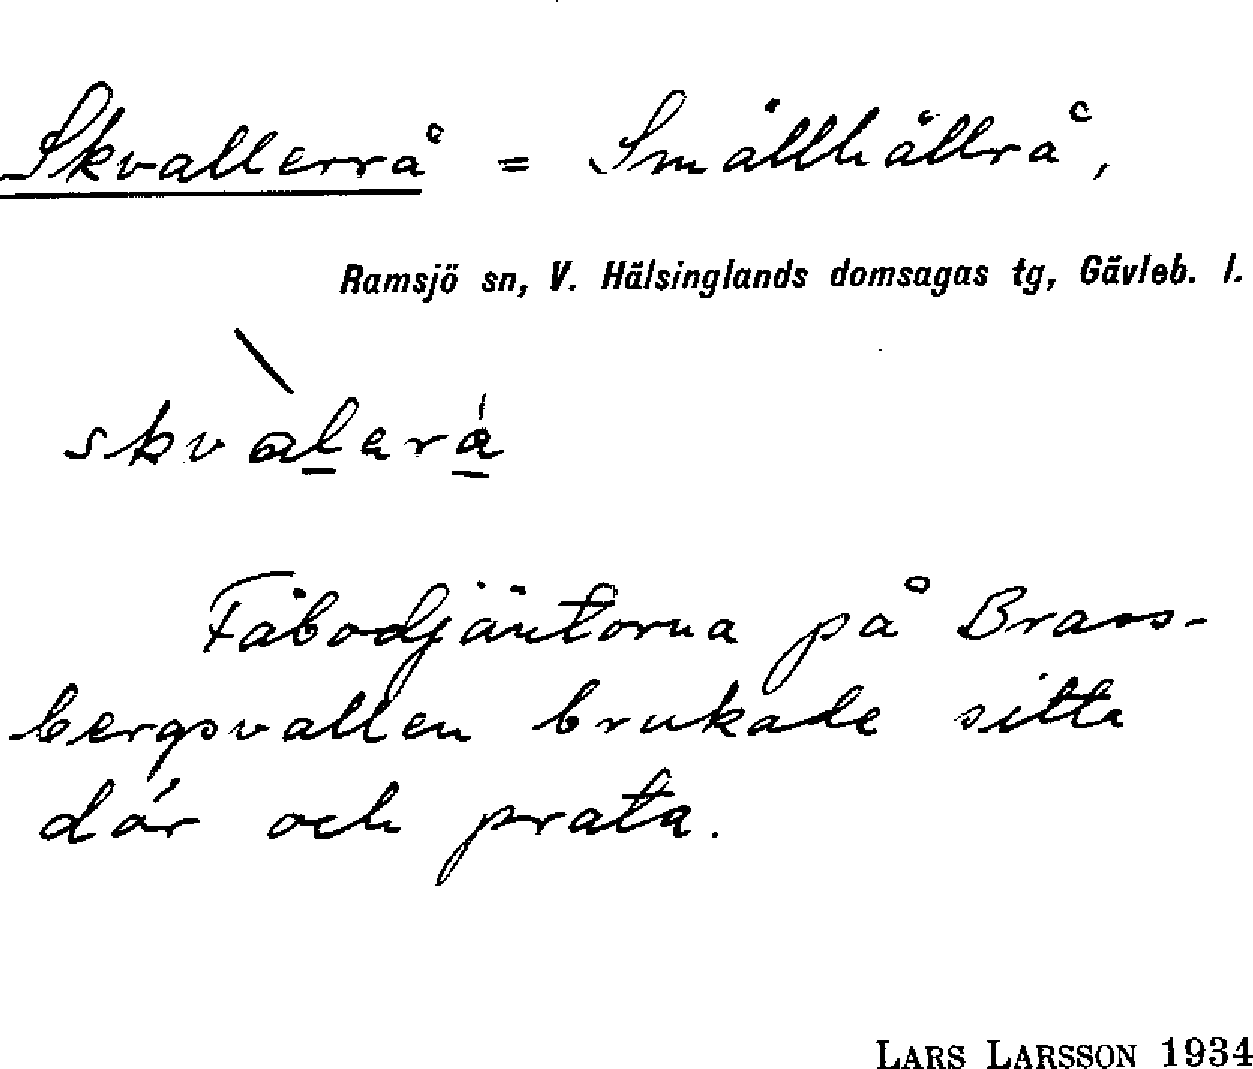 Skvallerrå = Smällhällrå,
Ramsjö sn, V. Hälsinglands domsagas tg, Gävleb. l.
skvalerá
Fäbodjäntorna på Brass-
bergsvallen brukade sitta
där och prata.
LARS LARSSON 1934